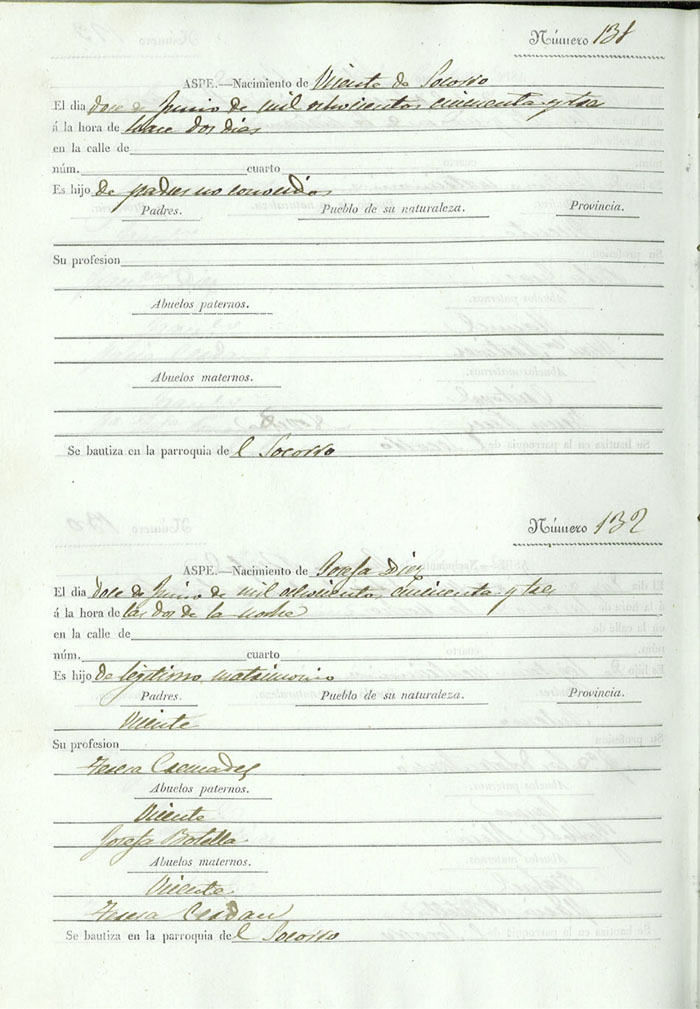 Número 131
ASPE.—Nacimiento de Vicente de Socorro
El dia doce de Junio de mil ochocientos cincuenta y tres
á la hora de hace dos dias
en la calle de
núm. cuarto
Es hijo de padres no conocidos
Padres. Pueblo de su naturaleza. Provincia.
Su profesion
Abuelos paternos.
Abuelos maternos.
Se bautiza en la parroquia de l Socorro
Número 132
ASPE.—Nacimiento de Josefa Diez
El dia doce de Junio de mil ochocientos cincuenta y tres
á la hora de las dos de la noche
en la calle de
núm. cuarto
Es hijo de legitimo matrimonio
Padres. Pueblo de su naturaleza. Provincia.
Vicente
Su profesion
Teresa Cremades
Abuelos paternos.
Vicente
Josefa Botella
Abuelos maternos.
Vicente
Teresa Cerdan
Se bautiza en la parroquia de l Socorro